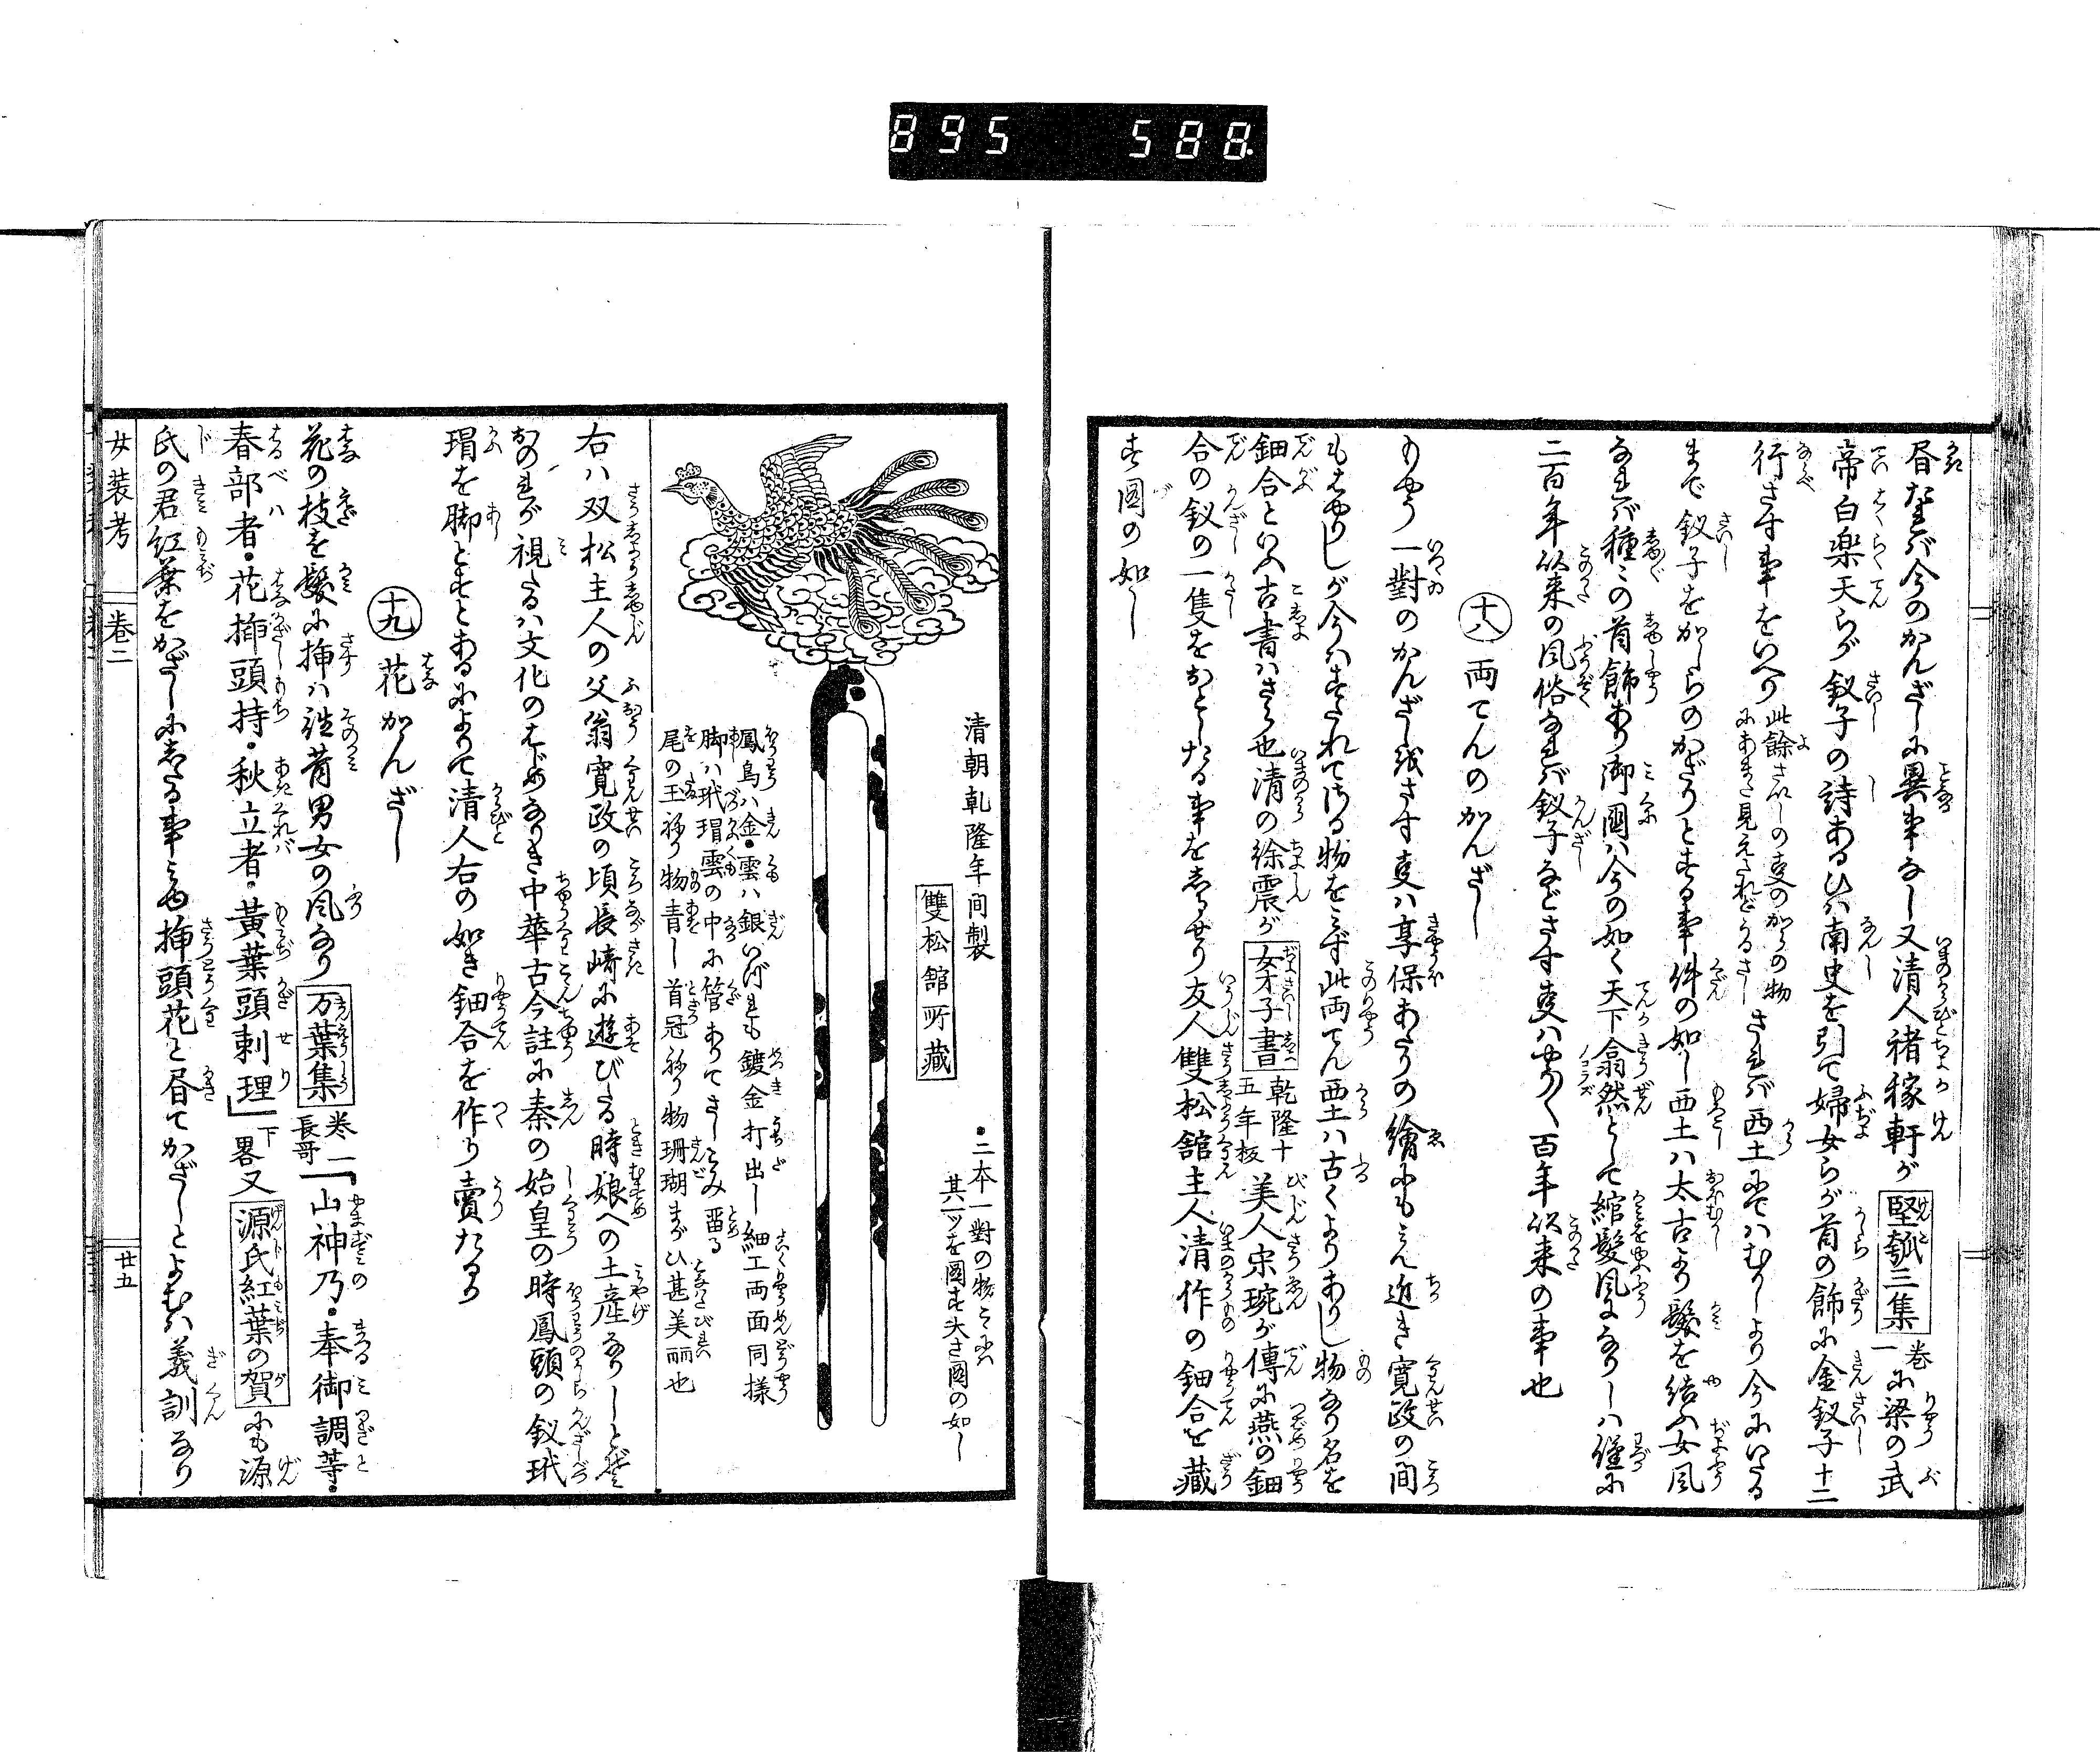 895 588.
昏たれバ今のかんざしに異事なし又清人褚稼軒が堅瓠三集巻一に梁の武
帝白楽天らが釵子の詩あるひハ南史を引て婦女らが首の飾に金釵子十二
行さす事をいへり さればバ西土にてハむかしより今にいたる
まで釵子をかしらのかざりとする事件の如し西土ハ太古より髪を結ふ女風
なれバ種々の首飾あり御國ハ今の如く天下翕然として綰髪風になりしハ僅に
二百年以来の風俗なれバ釵子などさす事ハやう〳〵百年以来の事也
十八 両てんのかんざし
りやう一對のかんざしをさす事ハ享保あたりの繪にもみえ近き寛政の間
もはやりしが今ハすたれてける物をみず此両てん西土ハ古くよりありし物なり名を
鈿合といふ古書ハさら也清の徐震が女才子書乾隆十五年板美人宋琬が傳に燕の鈿
合の釵の一隻をおとしたる事をしるせり友人雙松舘主人清作の鈿合を藏
す図の如し
清朝乾隆年间製
雙松舘所藏
・二本一對の物こゝにハ
其一ツを圖す大さ圖の如し
鳳鳥ハ金・雲ハ銀いづれも鍍金打出し細工両面同様
脚ハ玳瑁雲の中に管ありてさしこみ畱る
尾の玉ねり物青し首冠ねり物珊瑚まがひ甚美丽也
右ハ双松主人の父翁寛政の頃長崎に遊びたる時娘への土産なりしとぞ
おのれが視たるハ文化のはじめなりき中華古今註に秦の始皇の時鳳頭の釵玳
瑁を脚とすとあるによりて清人右の如き鈿合を作り賣たるか
十九 花かんざし
花の枝を髪に挿ハ徃昔男女の風なり万葉集巻一長哥「山神乃・奉御調等・
春部者・花挿頭持・秋立者・黄葉頭刺理」下畧又源氏紅葉の賀にも源
氏の君紅葉をかざしにしたる事みゆ挿頭花と昏てかざしとよむハ義訓なり
女装考 巻二 廿五